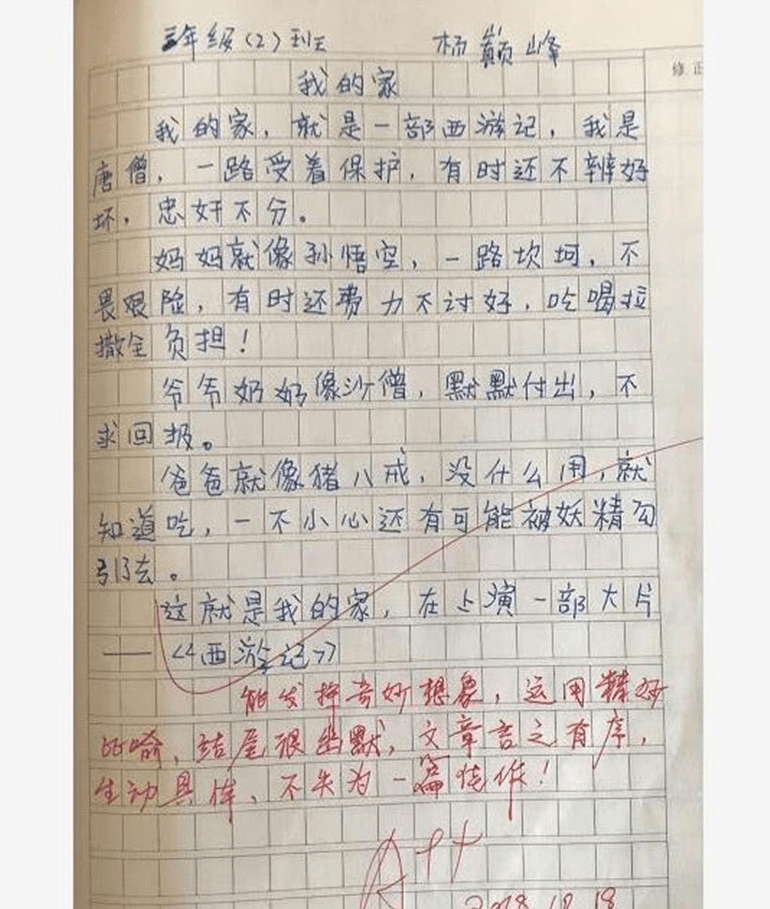 三年级(2)班 杨巅峰
修正
我的家
我的家，就是一部西游记，我是
唐僧，一路受着保护，有时还不辨好
坏，忠奸不分。
妈妈就像孙悟空，一路坎坷，不
畏艰险，有时还费力不讨好，吃喝拉
撒全负担！
爷爷奶奶像沙僧，默默付出，不
求回报。
爸爸就像猪八戒，没什么用，就
知道吃，一不小心还有可能被妖精勾
引去。
这就是我的家，在上演一部大片
——《西游记》
能发挥奇妙想象，运用精好
的喻，结尾很幽默，文章言之有序，
生动具体，不失为一篇佳作！
A++
2018.12.18